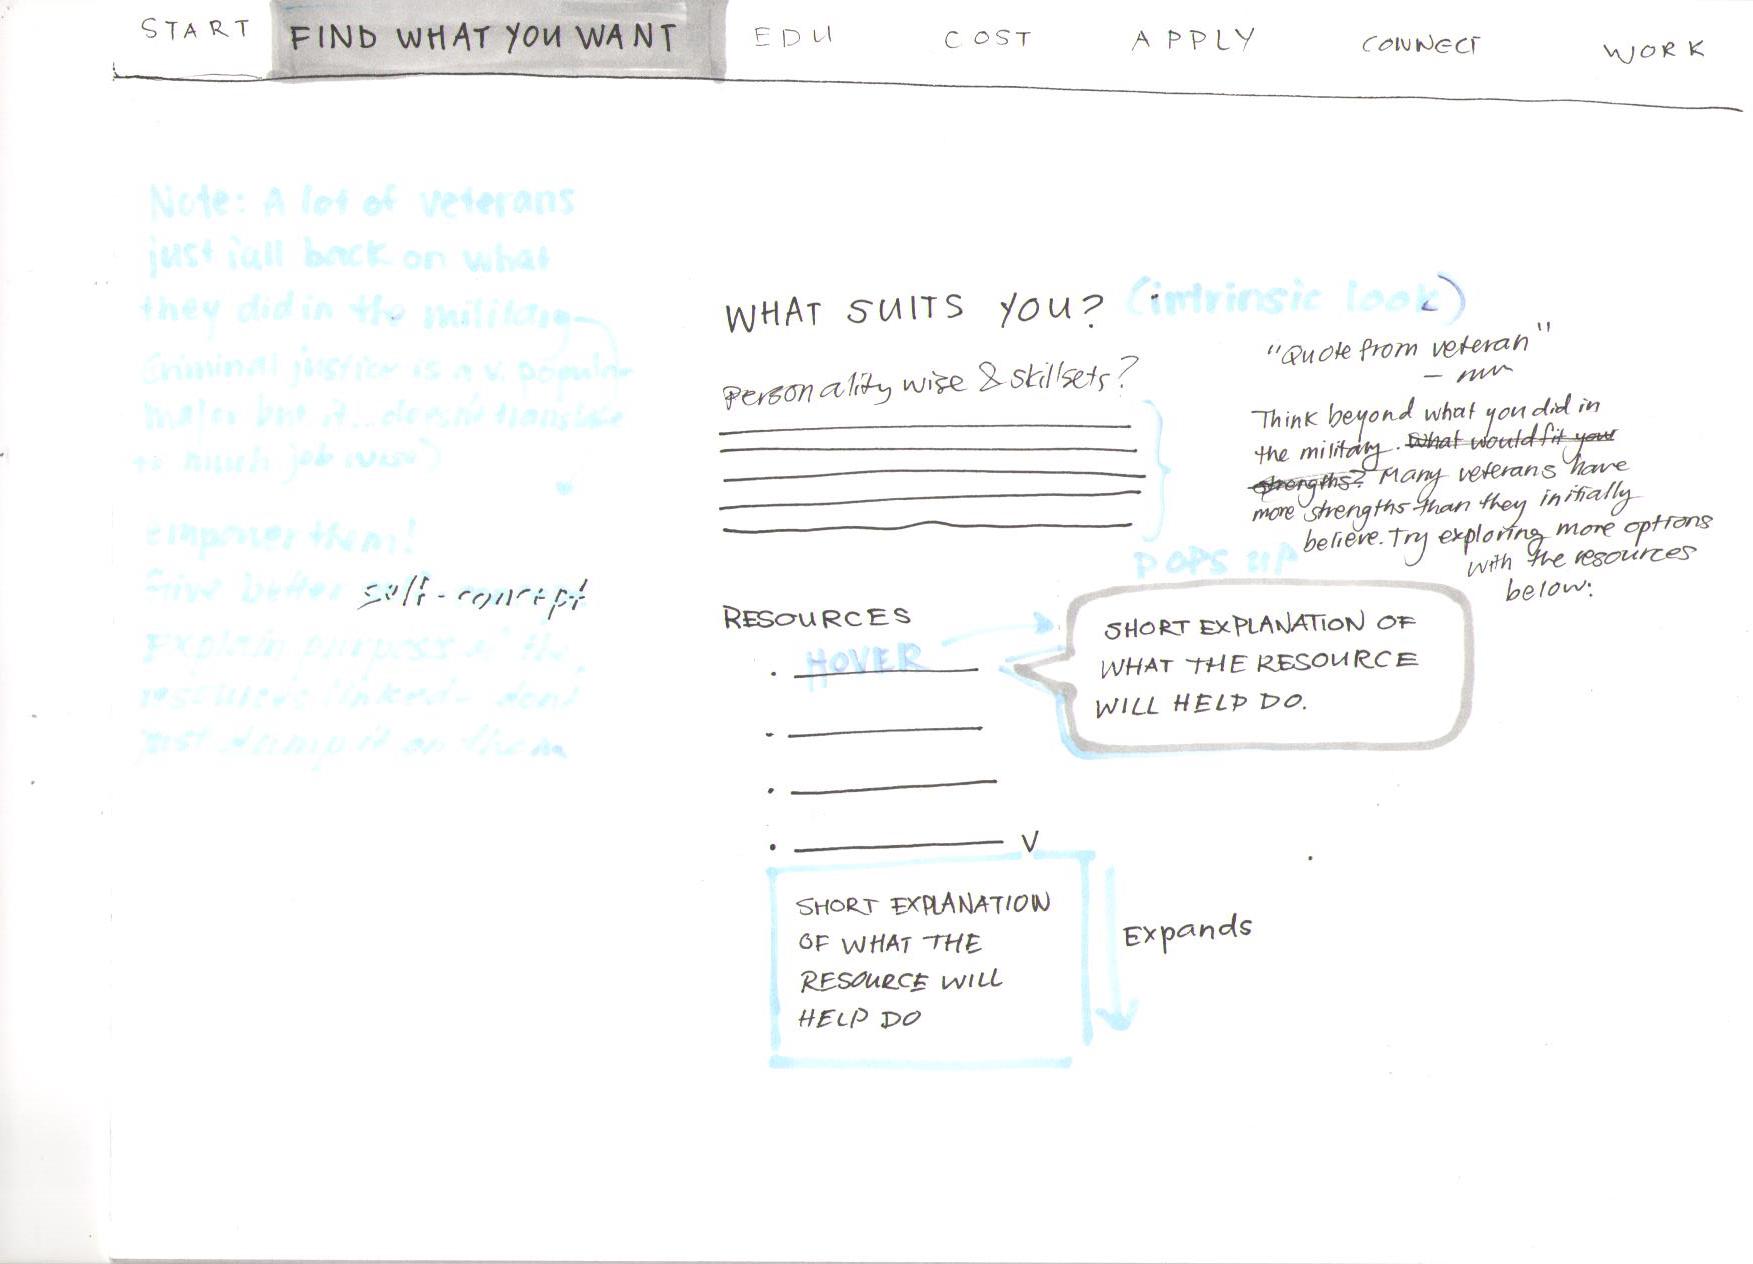 START FIND WHAT YOU WANT EDU COST APPLY CONNECT WORK
Note: A lot of veterans
just fall back on what
they did in the military
Criminal justice is a v. popular
major but it... doesn't translate
to much job wise)
empower them!
Give better self-concept
Explain purpose of the
resources linked - don't
just dump it on them
WHAT SUITS YOU? (intrinsic look)
Personality wise & skillsets?
"Quote from veteran"
Think beyond what you did in
the military. What would fit your
strengths? Many veterans have
more strengths than they initially
believe. Try exploring more options
with the resources
below:
POPS UP
RESOURCES
HOVER
SHORT EXPLANATION OF
WHAT THE RESOURCE
WILL HELP DO.
V
SHORT EXPLANATION
OF WHAT THE
RESOURCE WILL
HELP DO
Expands